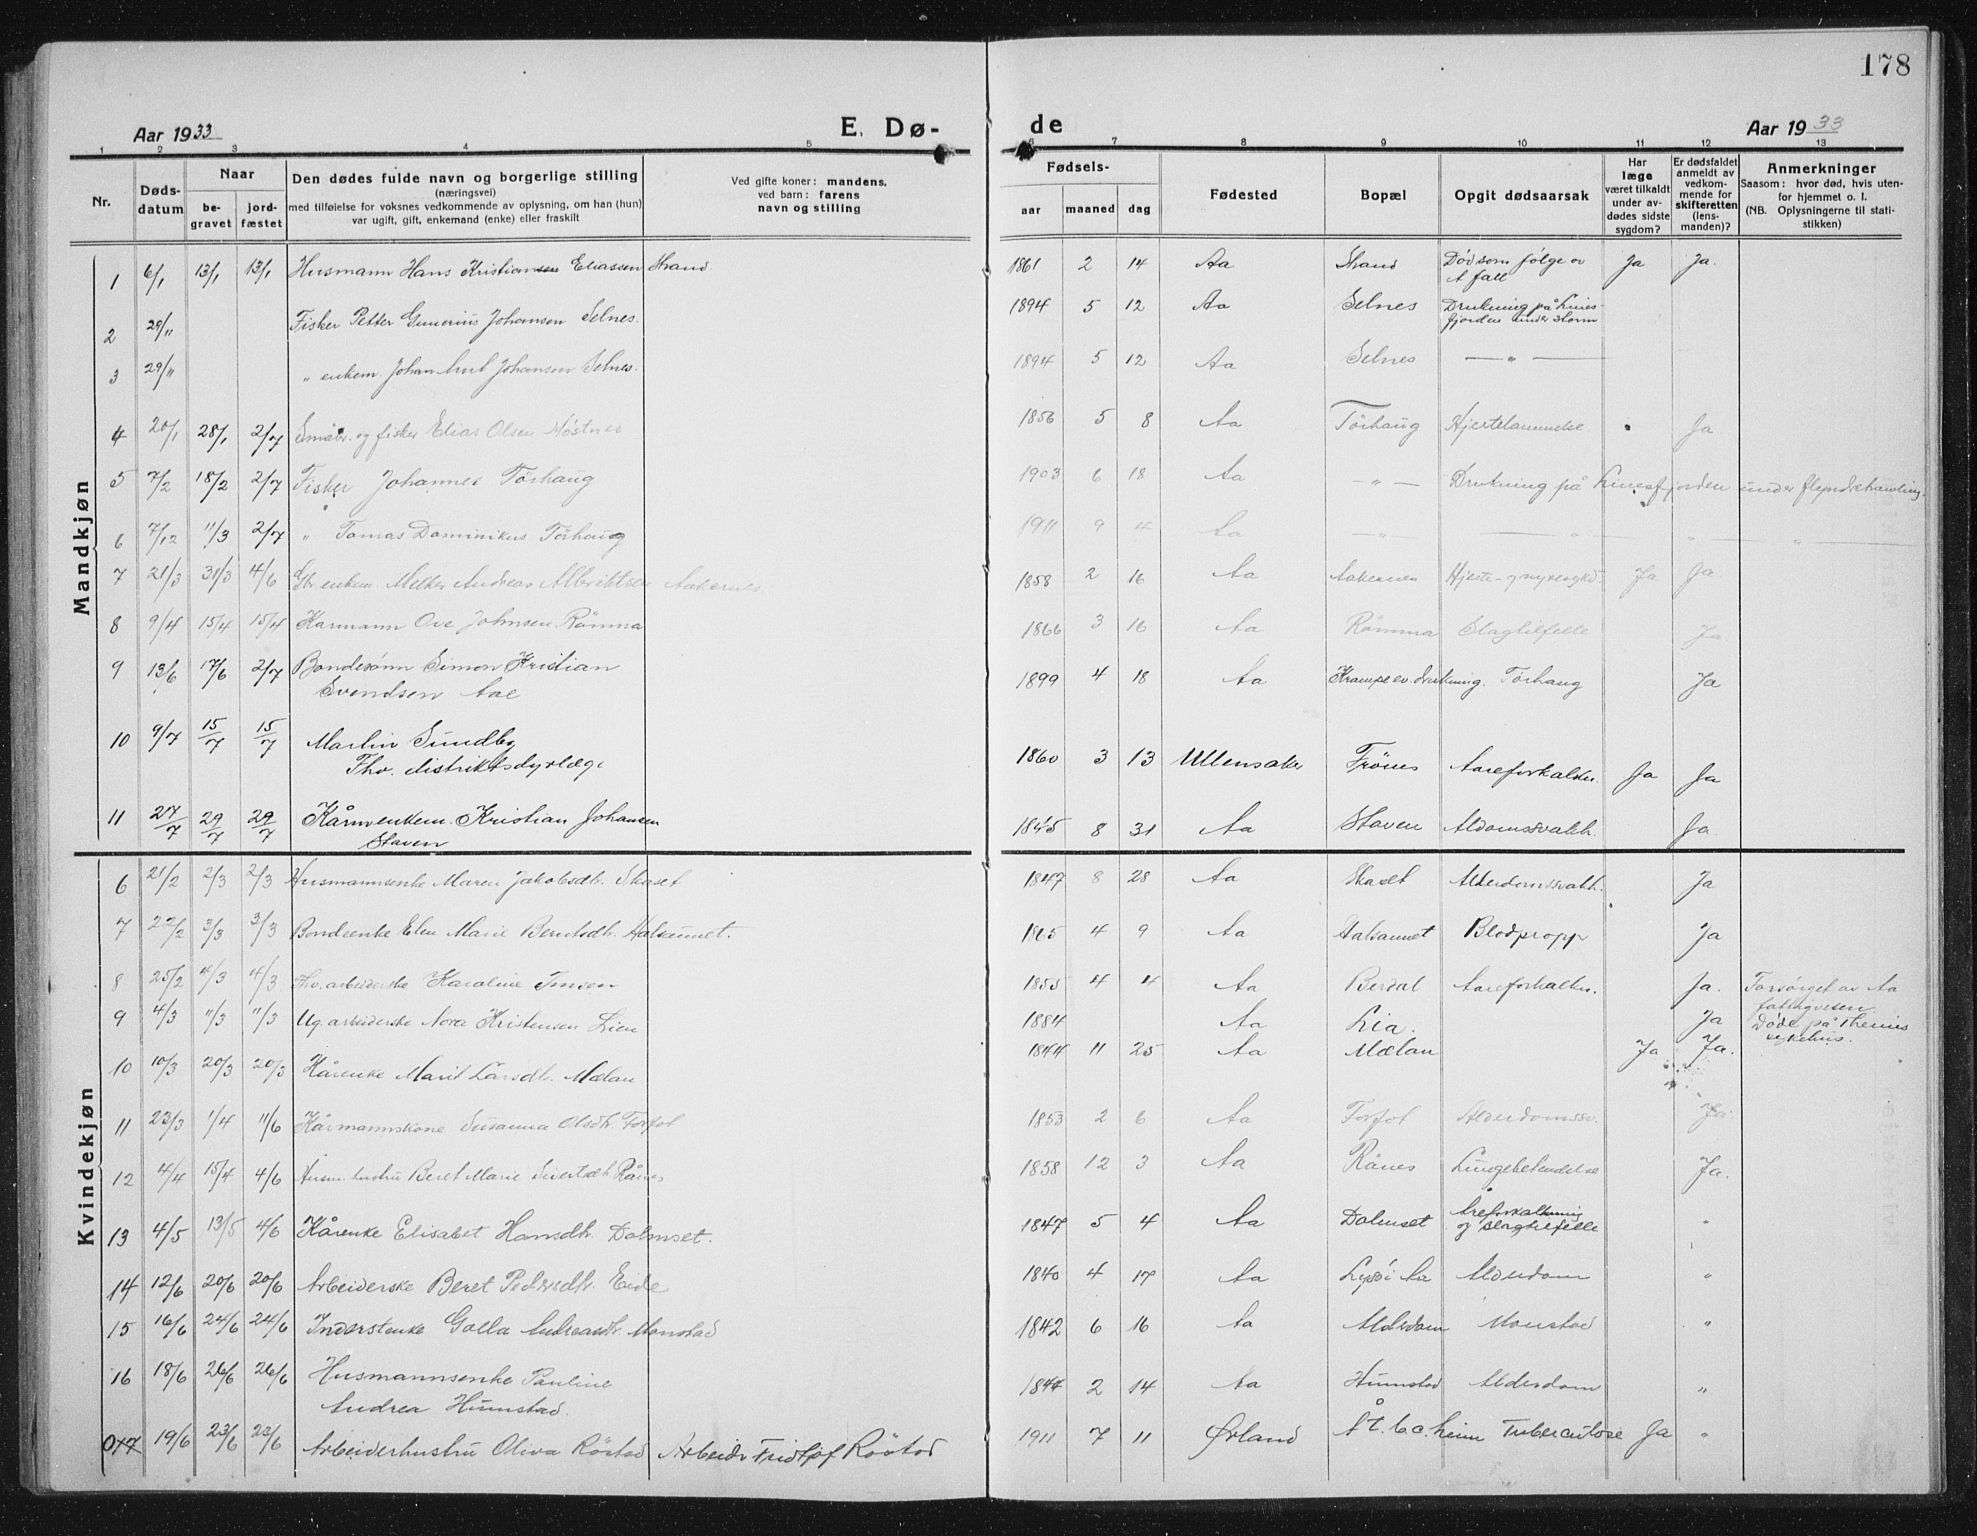 178
Aar 1933 E. Dø- de Aar 1933
1 2 3 4 5 6 7 8 9 10 11 12 13
Nr.
Døds-
datum
Naar
be-
gravet
jord-
fæstet
Den dødes fulde navn og borgerlige stilling
(næringsvei)
med tilføielse for voksnes vedkommende av oplysning, om han (hun)
var ugift, gift, enkemand (enke) eller fraskilt
Ved gifte koner: mandens,
ved barn: farens
navn og stilling
Fødsels-
aar maaned dag
Fødested
Bopæl
Opgit dødsaarsak
Har
læge
været tilkaldt
under av-
dødes sidste
sygdom?
Er dødsfaldet
anmeldt av
vedkom-
mende for
skifteretten
(lens-
manden)?
Anmerkninger
Saasom: hvor død, hvis uten-
for hjemmet o. l.
(NB. Oplysningerne til stati-
stikken)
Mandkjøn
1 6/1 13/1 13/1 Husmann Hans Kristiansen Eliassen Strand. 1861 2 14 Aa Strand Død som følge av Ja Ja.
fall
2 29/11 Fisker Petter Gunerius Johansen Selnes. 1894 5 12 Aa Selnes Drukning på Lines-
fjorden under storm
3 29/11 " enkem. Johan Johansen Selnes. 1894 5 12 Aa Selnes — " —
4 20/1 28/1 2/7 Småbr. og fisker Elias Olsen Møstnes 1856 5 8 Aa Törhaug Hjertelammelse Ja
5 7/2 18/2 2/7 Fisker Johannes Törhaug 1903 6 18 Aa — " — Drukning på Linesfjorden under flyndrehandling.
6 7/12 11/3 2/7 " Tomas Dominikus Törhaug 1911 9 4 Aa — " — — " — " "
7 21/3 31/3 4/6 enkem. Melker Andreas Albriktsen Aakernes 1858 2 16 Aa Aakernes Hjerte- og nyresygd. Ja Ja
8 9/4 15/4 15/4 Kårmann Ove Johnsen Römma 1866 3 16 Aa Römma Slagtilfelle Ja
9 13/6 17/6 2/7 Bondesönn Simon Kristian 1899 4 18 Aa Krampe ev. drukning. Törhaug Ja
Svendsen Aae
10 9/7 15/7 15/7 Martin Sundby 1860 3 13 Ullensaker Frönes Aareforkalkn. Ja Ja
Fhv. distriktsdyrlæge
11 27/7 29/7 29/7 Kårmenkem. Kristian Johansen 1845 8 31 Aa Staven Aldomssvakh. Ja
Staven
Kvindekjøn
6 21/2 2/3 2/3 Husmannsenke Maren Jakobsdtr. Skaset 1847 8 28 Aa Skaset Alderdomssvakh. Ja
7 22/2 3/3 3/3 Bondeenke Elen Marie Berntsdtr. Halsaunet. 1865 4 9 Aa Halsaunet Blodpropp Ja
8 25/2 4/3 4/3 Fhv. arbeiderske Karoline Jensen 1855 4 4 Aa Berdal Aareforkalkn. Ja. Forsørget av Aa
fattigvesen.
9 4/3 11/3 11/3 Ug. arbeiderske Nora Kristensen Lien 1884 Aa Lia. Ja Døde på Trheims
sykehus.
10 10/3 20/3 20/3 Kårenke Marit Larsdtr. Mælan 1844 11 25 Aa Mælan Ja Ja.
11 23/3 1/4 11/6 Kårmannskone Susanna Olsdtr. Forfot 1853 2 6 Aa Forfot Alderdomssv. Ja.
12 4/4 15/4 4/6 Husm. hustru Beret Marie Sivertsdtr. Rånes 1858 12 3 Aa Rånes Lungebetendelse Ja.
13 4/5 13/5 4/6 Kårenke Elisabet Hansdtr. Dalmset. 1847 5 4 Aa Dalmset Åreforkalkning "
og slagtilfelle
14 12/6 20/6 20/6 Arbeiderske Beret Pedersdtr. Eide 1840 4 17 Aa Lysöi Aa Alderdom "
15 16/6 24/6 24/6 Inderstenke Golla Andreasdtr. Monstad 1842 6 16 Aa Alderdom Monstad "
16 18/6 26/6 26/6 Husmannsenke Pauline 1844 2 14 Aa Humstad Alderdom "
Andrea Humstad.
17 19/6 23/6 23/6 Arbeiderhustru Oliva Röstad Arbeider Fridtjof Röstad 1911 7 11 Ørland Å t.b.c. heim Tuberculose Ja "